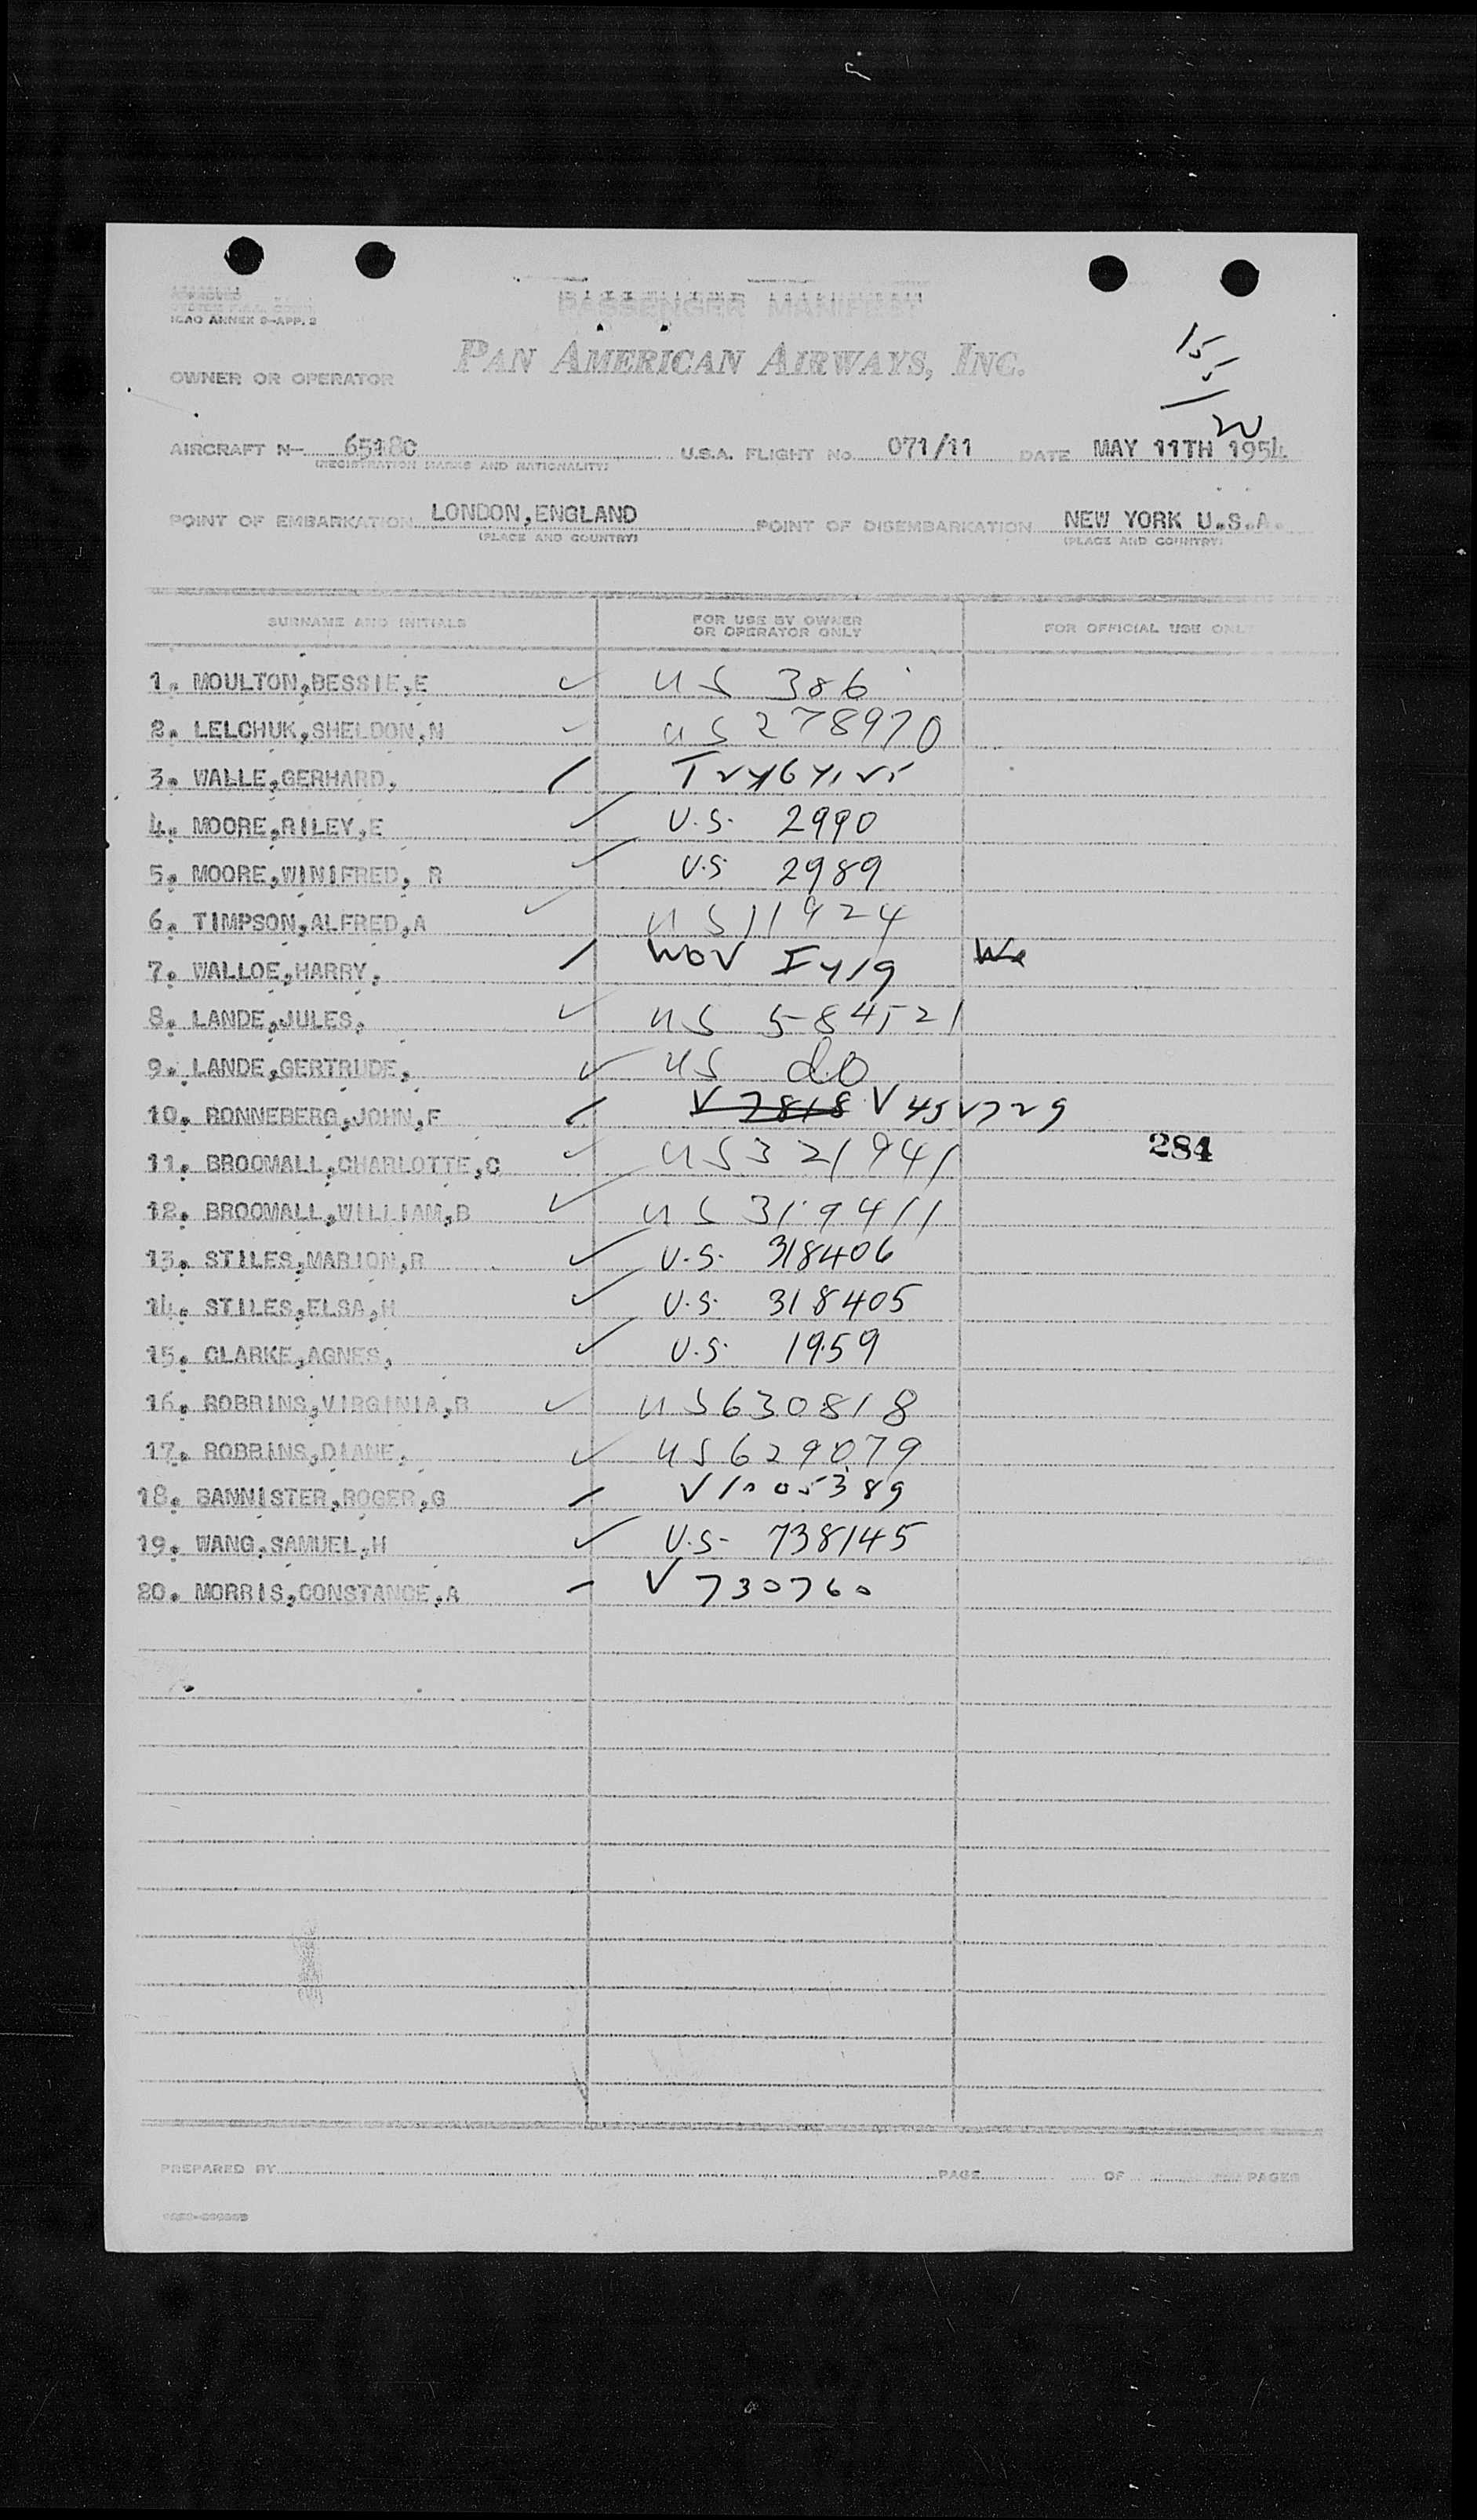 APPROVED
ICAO ANNEX 9-APP. 2
PASSENGER MANIFEST
OWNER OR OPERATOR PAN AMERICAN AIRWAYS, INC.
15
5
20
AIRCRAFT N- 6518C U.S.A. FLIGHT No. 071/11 DATE MAY 11TH 1954
(REGISTRATION MARKS AND NATIONALITY)
POINT OF EMBARKATION LONDON,ENGLAND POINT OF DISEMBARKATION NEW YORK U.S.A.
(PLACE AND COUNTRY) (PLACE AND COUNTRY)
SURNAME AND INITIALS FOR USE BY OWNER OR OPERATOR ONLY FOR OFFICIAL USE ONLY
1. MOULTON,BESSIE,E ✓ US 386
2. LELCHUK,SHELDON,N ✓ US 278970
3. WALLE,GERHARD, /
4. MOORE,RILEY,E ✓ U.S. 2990
5. MOORE,WINIFRED, R ✓ U.S. 2989
6. TIMPSON,ALFRED,A ✓ US 11924
7. WALLOE,HARRY, /
8. LANDE,JULES, ✓ US 584521
9. LANDE,GERTRUDE, ✓ US do
10. RONNEBERG,JOHN,F / V 7818 V 452729
11. BROOMALL,CHARLOTTE,C ✓ US 321941 284
12. BROOMALL,WILLIAM,B ✓ US 319411
13. STILES,MARION,R ✓ U.S. 318406
14. STILES,ELSA,H ✓ U.S. 318405
15. CLARKE,AGNES, ✓ U.S. 1959
16. ROBBINS,VIRGINIA,R ✓ US 630818
17. ROBBINS,DIANE, ✓ US 629079
18. BANNISTER,ROGER,G / V 1005389
19. WANG,SAMUEL,H ✓ U.S. 738145
20. MORRIS,CONSTANCE,A / V 730760
PREPARED BY PAGE OF PAGES